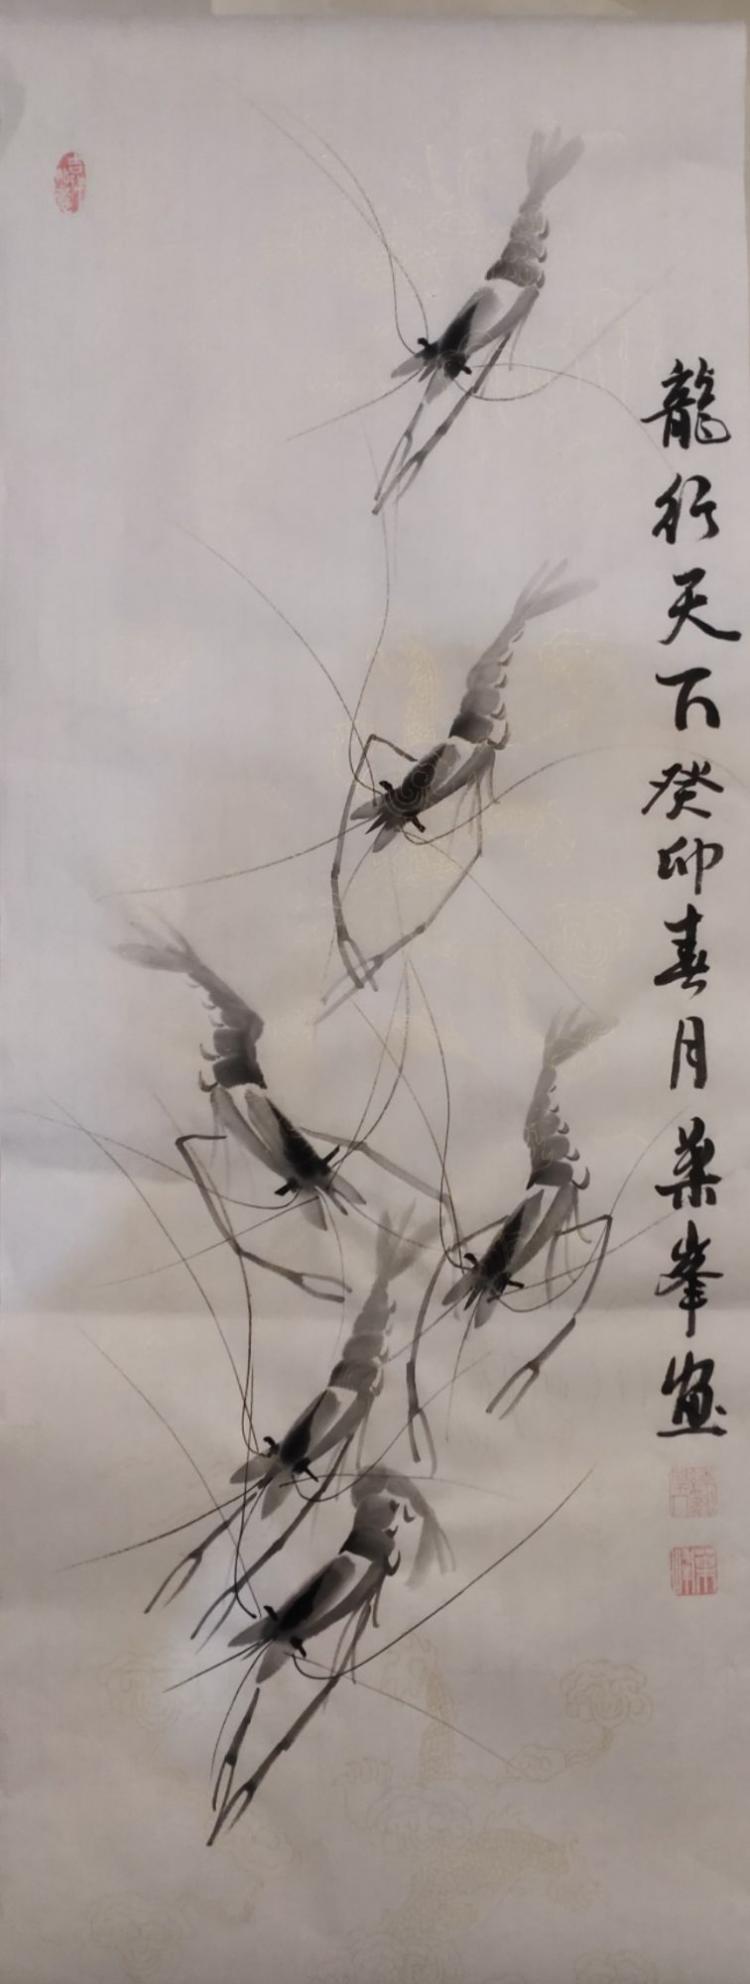 龍行天下癸卯春月業峯画